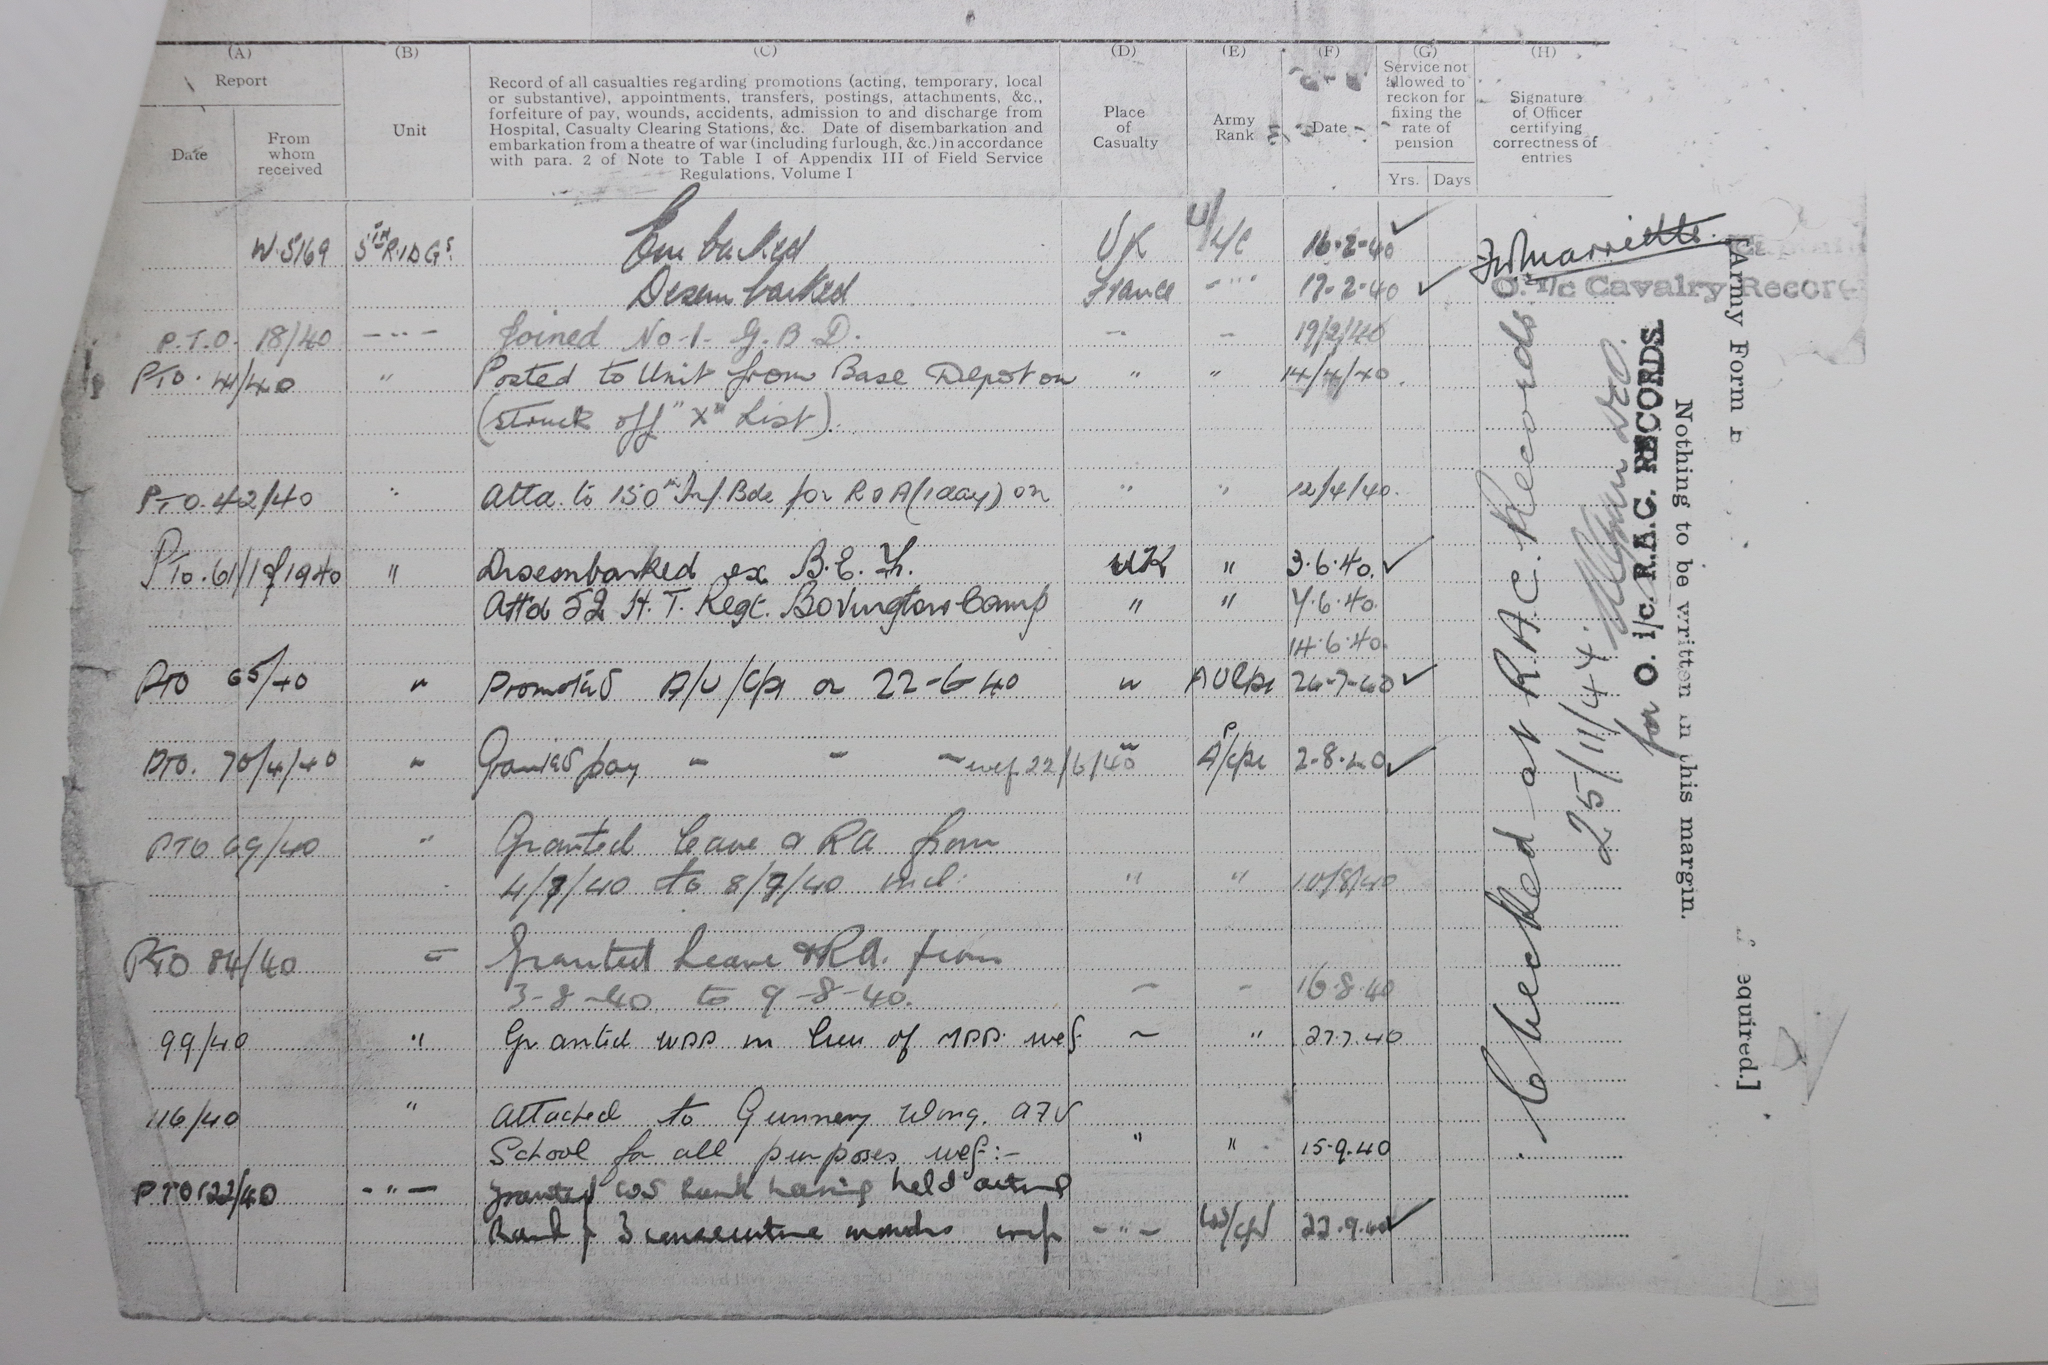 (A) (B) (C) (D) (E) (F) (G) (H)
Report
Date
From
whom
received
Unit
Record of all casualties regarding promotions (acting, temporary, local
or substantive), appointments, transfers, postings, attachments, &c.,
forfeiture of pay, wounds, accidents, admission to and discharge from
Hospital, Casualty Clearing Stations, &c. Date of disembarkation and
embarkation from a theatre of war (including furlough, &c.) in accordance
with para. 2 of Note to Table I of Appendix III of Field Service
Regulations, Volume I
Place
of
Casualty
Army
Rank
Date
Service not
allowed to
reckon for
fixing the
rate of
pension
Yrs. Days
Signature
of Officer
certifying
correctness of
entries
W.5169 5TH R.I.D.Gs. Embarked UK U/L/C 16-2-40
Disembarked France - " - 17-2-40
P.T.O. 18/40 - " - Joined No-1- G.B.D. - - 19/2/40
PTO. 41/40 " Posted to Unit from Base Depot on " " 14/4/40.
(Struck off "X" List).
PTO. 42/40 " Attd. to 150th Inf. Bde for R O A (1 day) on " " 12/4/40.
PTO. 61/1 of 1940 " Disembarked ex B.E.F. UK " 3.6.40.
Attd 52 H.T. Regt. Bovington Camp " " 7.6.40.
14.6.40.
PTO 65/40 " Promoted A/U/Cpl on 22-6-40 " A U Cpl 26-7-40
PTO. 70/4/40 " Granted pay - " - " wef 22/6/40 " A/P/Cpl 2-8-40
PTO 69/40 " Granted leave & RA from
4/7/40 to 8/7/40 incl. " " 10/8/40
PTO 84/40 = Granted Leave & RA. from
3-8-40 to 9-8-40. - - 16.8.40
99/40 " Granted WPP in lieu of MPP. wef - " 27.7.40
116/40 " Attached to Gunnery Wing. AFV
School for all purposes wef:- " " 15.9.40
PTO 122/40 - " - Granted WS Rank having held acting
Rank for 3 consecutive months wef - " - WS/Cpl 22.9.40
O. I/c Cavalry Record
Checked at R.A.C. Records
25/11/44.
for O. i/c. R.A.C. RECORDS.
Nothing to be written in this margin.
[Army Form
equired.]